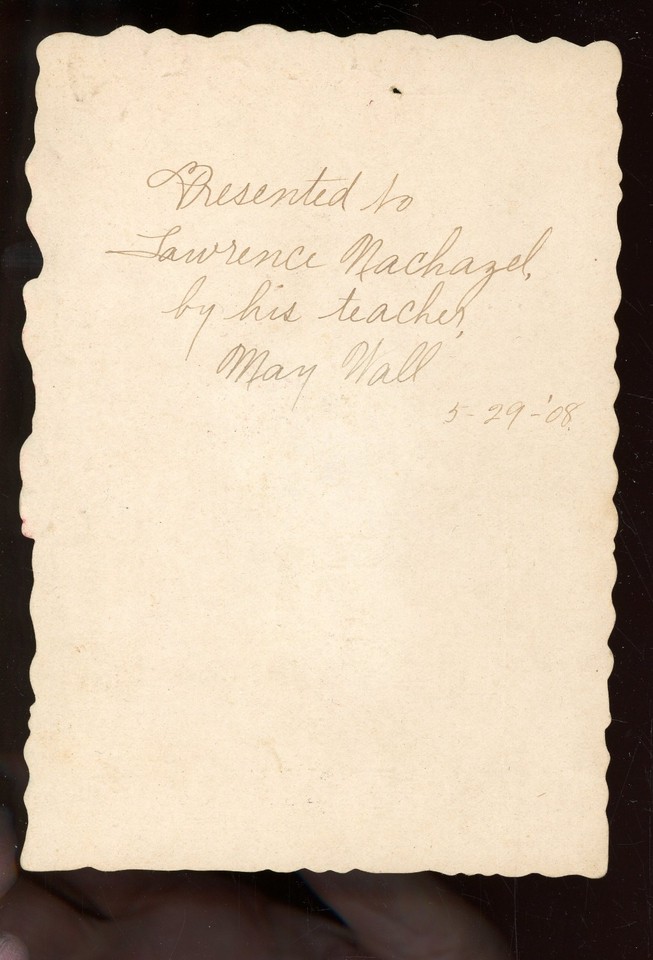 Presented to
Lawrence Nachazel,
by his teacher,
May Wall
5-29-'08.